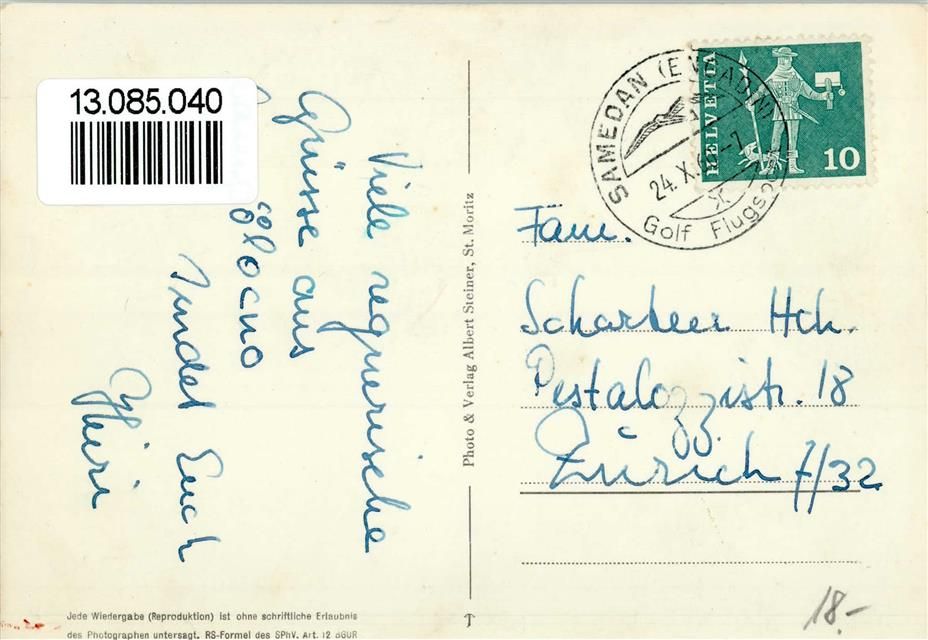 13.085.040
Viele regnerische
Grüsse aus
celocno
sendet Euch
SAMEDAN (ENGADIN)
24. X. 6
Golf Flugsport
HELVETIA
10
Fam.
Hch.
Pestalozzistr. 18
Zürich 7/32
Photo & Verlag Albert Steiner, St. Moritz
Jede Wiedergabe (Reproduktion) ist ohne schriftliche Erlaubnis
des Photographen untersagt. RS-Formel des SPhV. Art. 12 dGUR
18.-